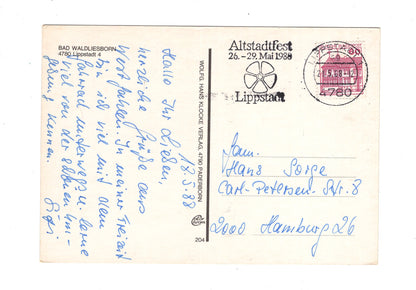 BAD WALDLIESBORN
4780 Lippstadt 4
18.5.88
Hallo Ihr Lieben,
herzliche Grüße aus
Westfalen. In meiner Freizeit
bin ich viel mit dem
Fahrrad unterwegs u. lerne
viel von der schönen Um-
gebung kennen.
WOLFG. HANS KLOCKE VERLAG, 4790 PADERBORN
204
Altstadtfest
26.-29. Mai 1988
Lippstadt
LIPPSTADT
4780
Fam.
Hans Sorge
Carl-Petersen-Str. 8
2000 Hamburg 26